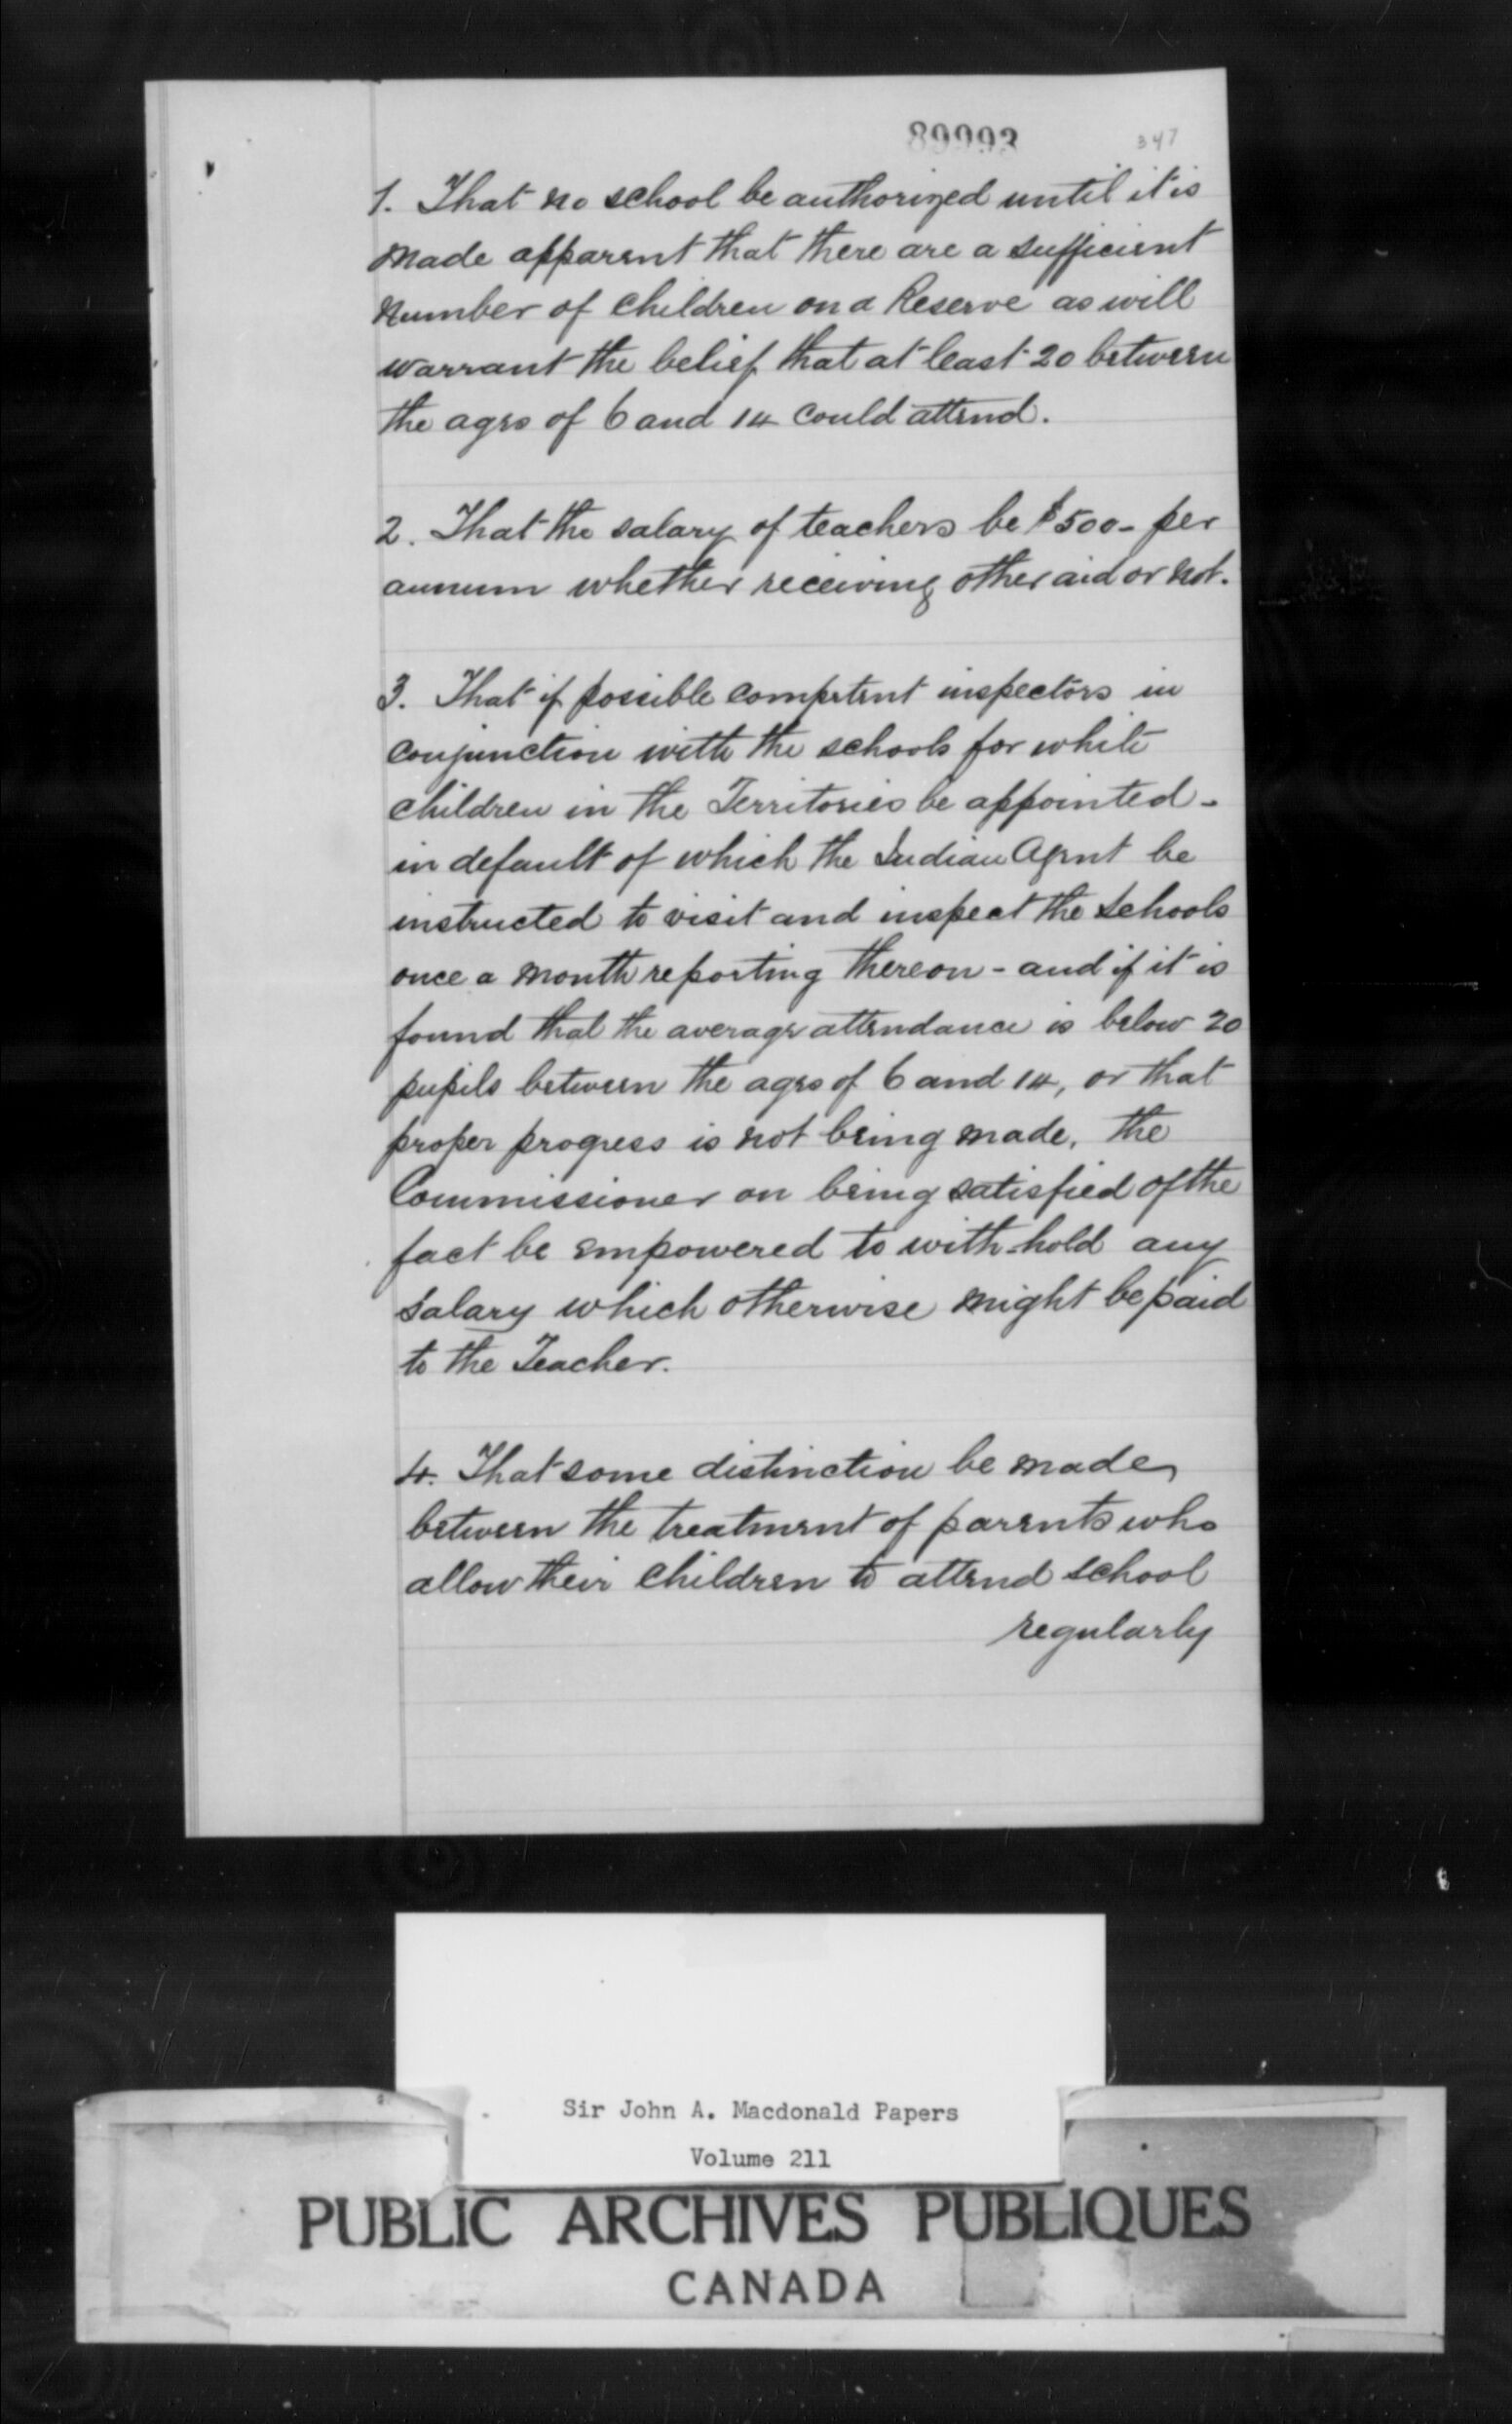 89993
347
1. That no school be authorized until it is
made apparent that there are a sufficient
number of children on a Reserve as will
warrant the belief that at least 20 between
the ages of 6 and 14 could attend.
2. That the salary of teachers be $500- per
annum whether receiving other aid or not.
3. That if possible competent inspectors in
conjunction with the schools for white
children in the Territories be appointed -
in default of which the Indian Agent be
instructed to visit and inspect the schools
once a month reporting thereon - and if it is
found that the average attendance is below 20
pupils between the ages of 6 and 14, or that
proper progress is not being made, the
Commissioner on being satisfied of the
fact be empowered to with-hold any
salary which otherwise might be paid
to the Teacher.
4. That some distinction be made
between the treatment of parents who
allow their children to attend school
regularly
Sir John A. Macdonald Papers
Volume 211
PUBLIC ARCHIVES PUBLIQUES
CANADA